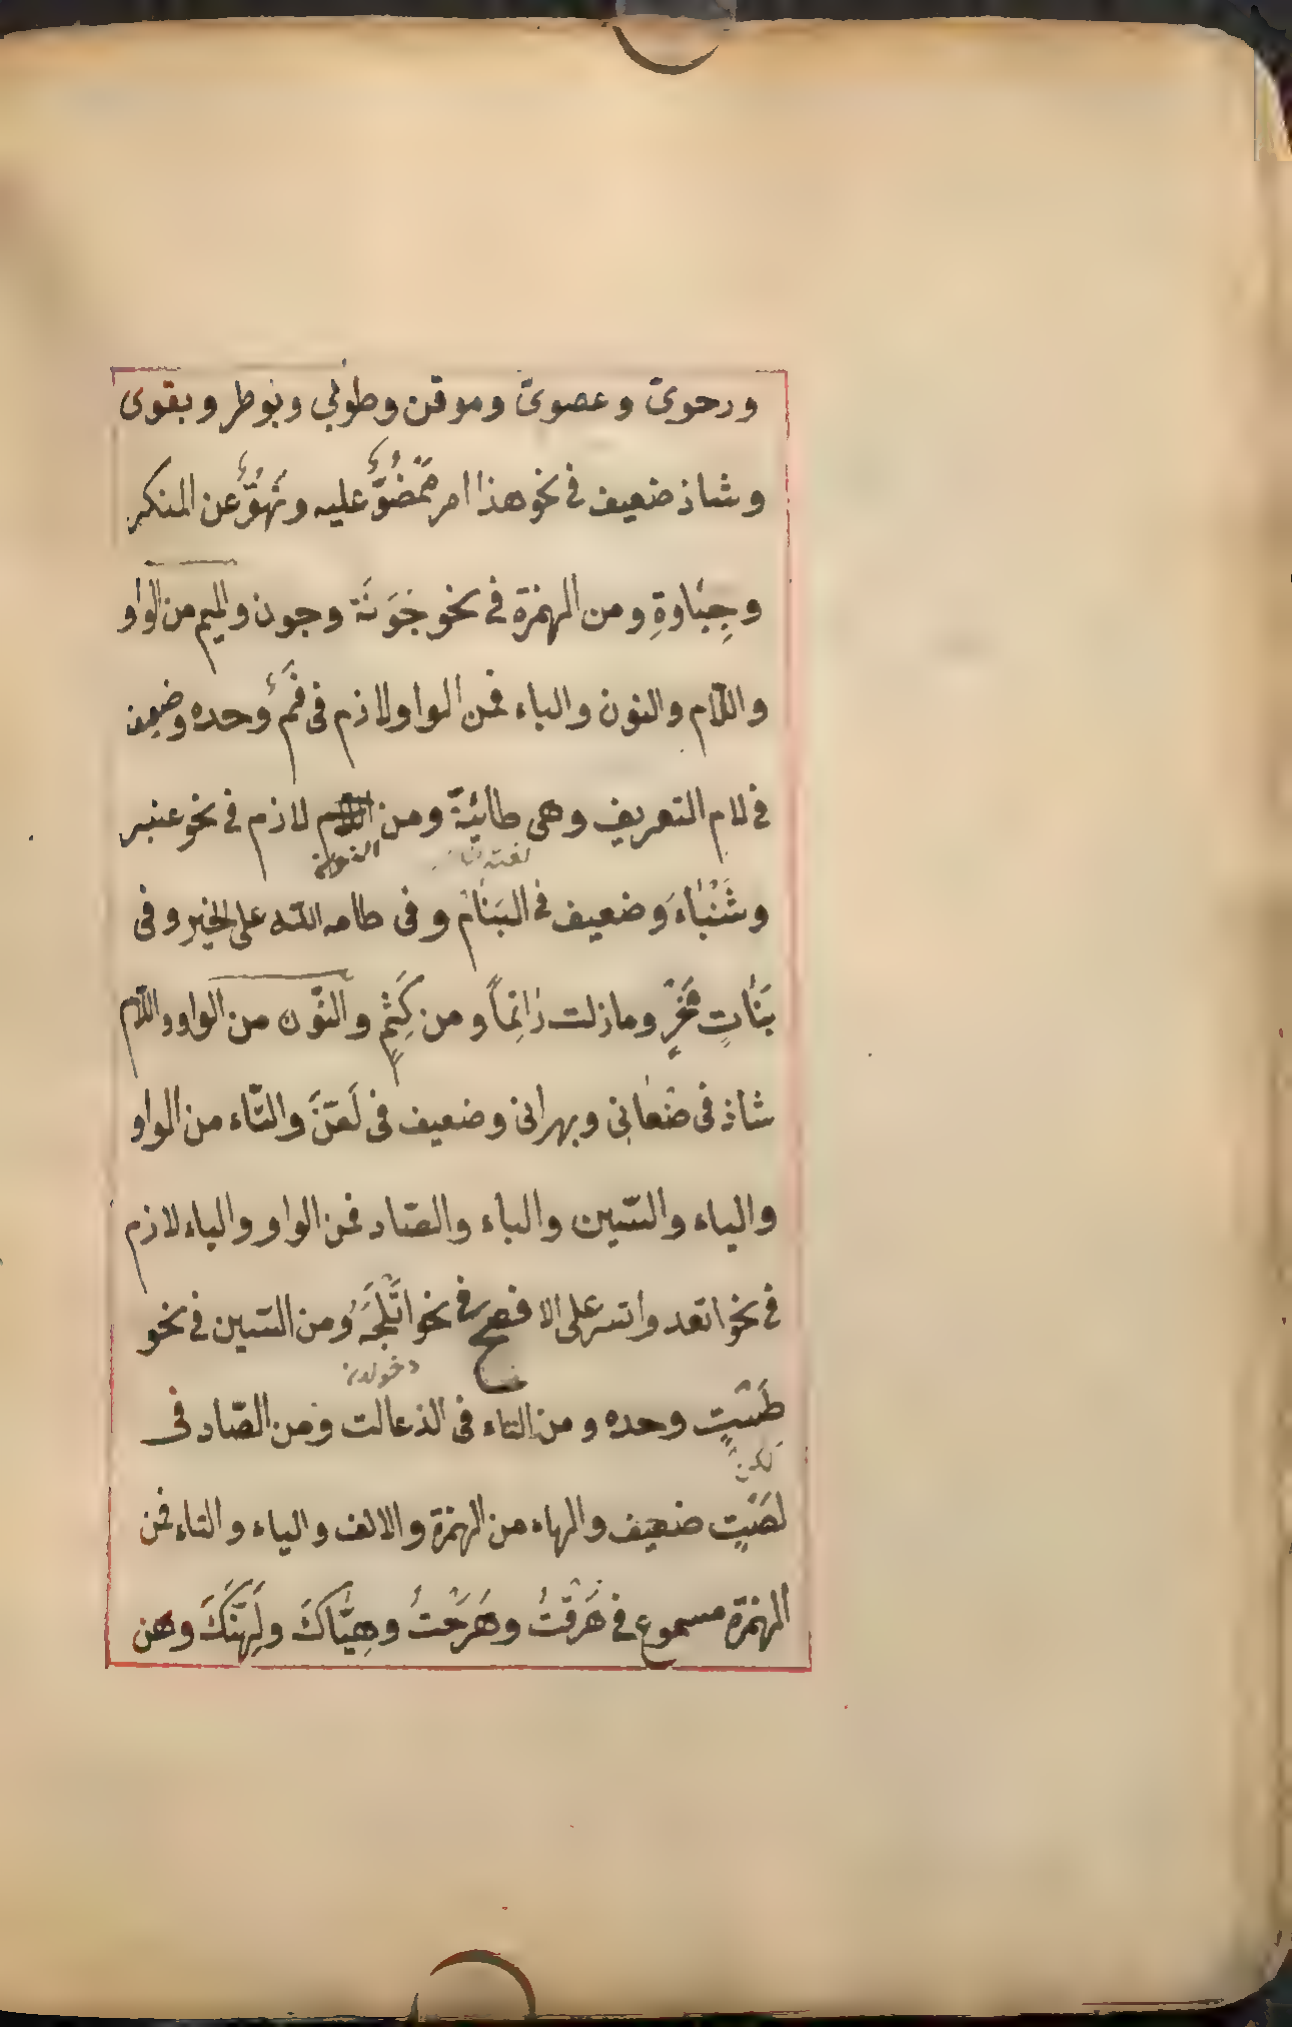 ورحوىّ وعصوىّ وموقن وطوبى وبوطر وبقوى
وشاذ ضعيف فى نحو هذا امر مَمْضُوٌّ عليه ونَهُوٌّ عن المنكر
وجِبَاوةٍ ومن الهمزة فى نحو جَوَنَة وجون والميم من الواو
واللّام والنون والباء فمن الواو لازم فى فَمٍ وحده وضعيف
فى لام التعريف وهى طائيّة ومن لازم فى نحو عنبر
النون
وشَنْبَاءَ وضعيف فى البَنَام وفى طامه اللّه على الخير وفى
بَنَاتِ مَخْرٍ وما زلت رَاتِماً ومن كَثَمٍ والنّون من الواو واللّام
شاذ فى صَنْعانى وبهرانى وضعيف فى لَعَنَّ والتّاء من الواو
والياء والسّين والباء والصّاد فمن الواو والياء لازم
فى نحو اتعد واتسر على الافصح فى نحو اتْلَجَهُ ومن السّين فى نحو
طَسْتٍ وحده ومن التاء فى الذعالت ومن الصّاد فى
لصْتٍ ضعيف والهاء من الهمزة والالف والياء والتاء فمن
الهمزة مسموع فى هَرَقْتُ وهَرَحْتُ وهِيَّاكَ ولَهِنَّكَ وهن